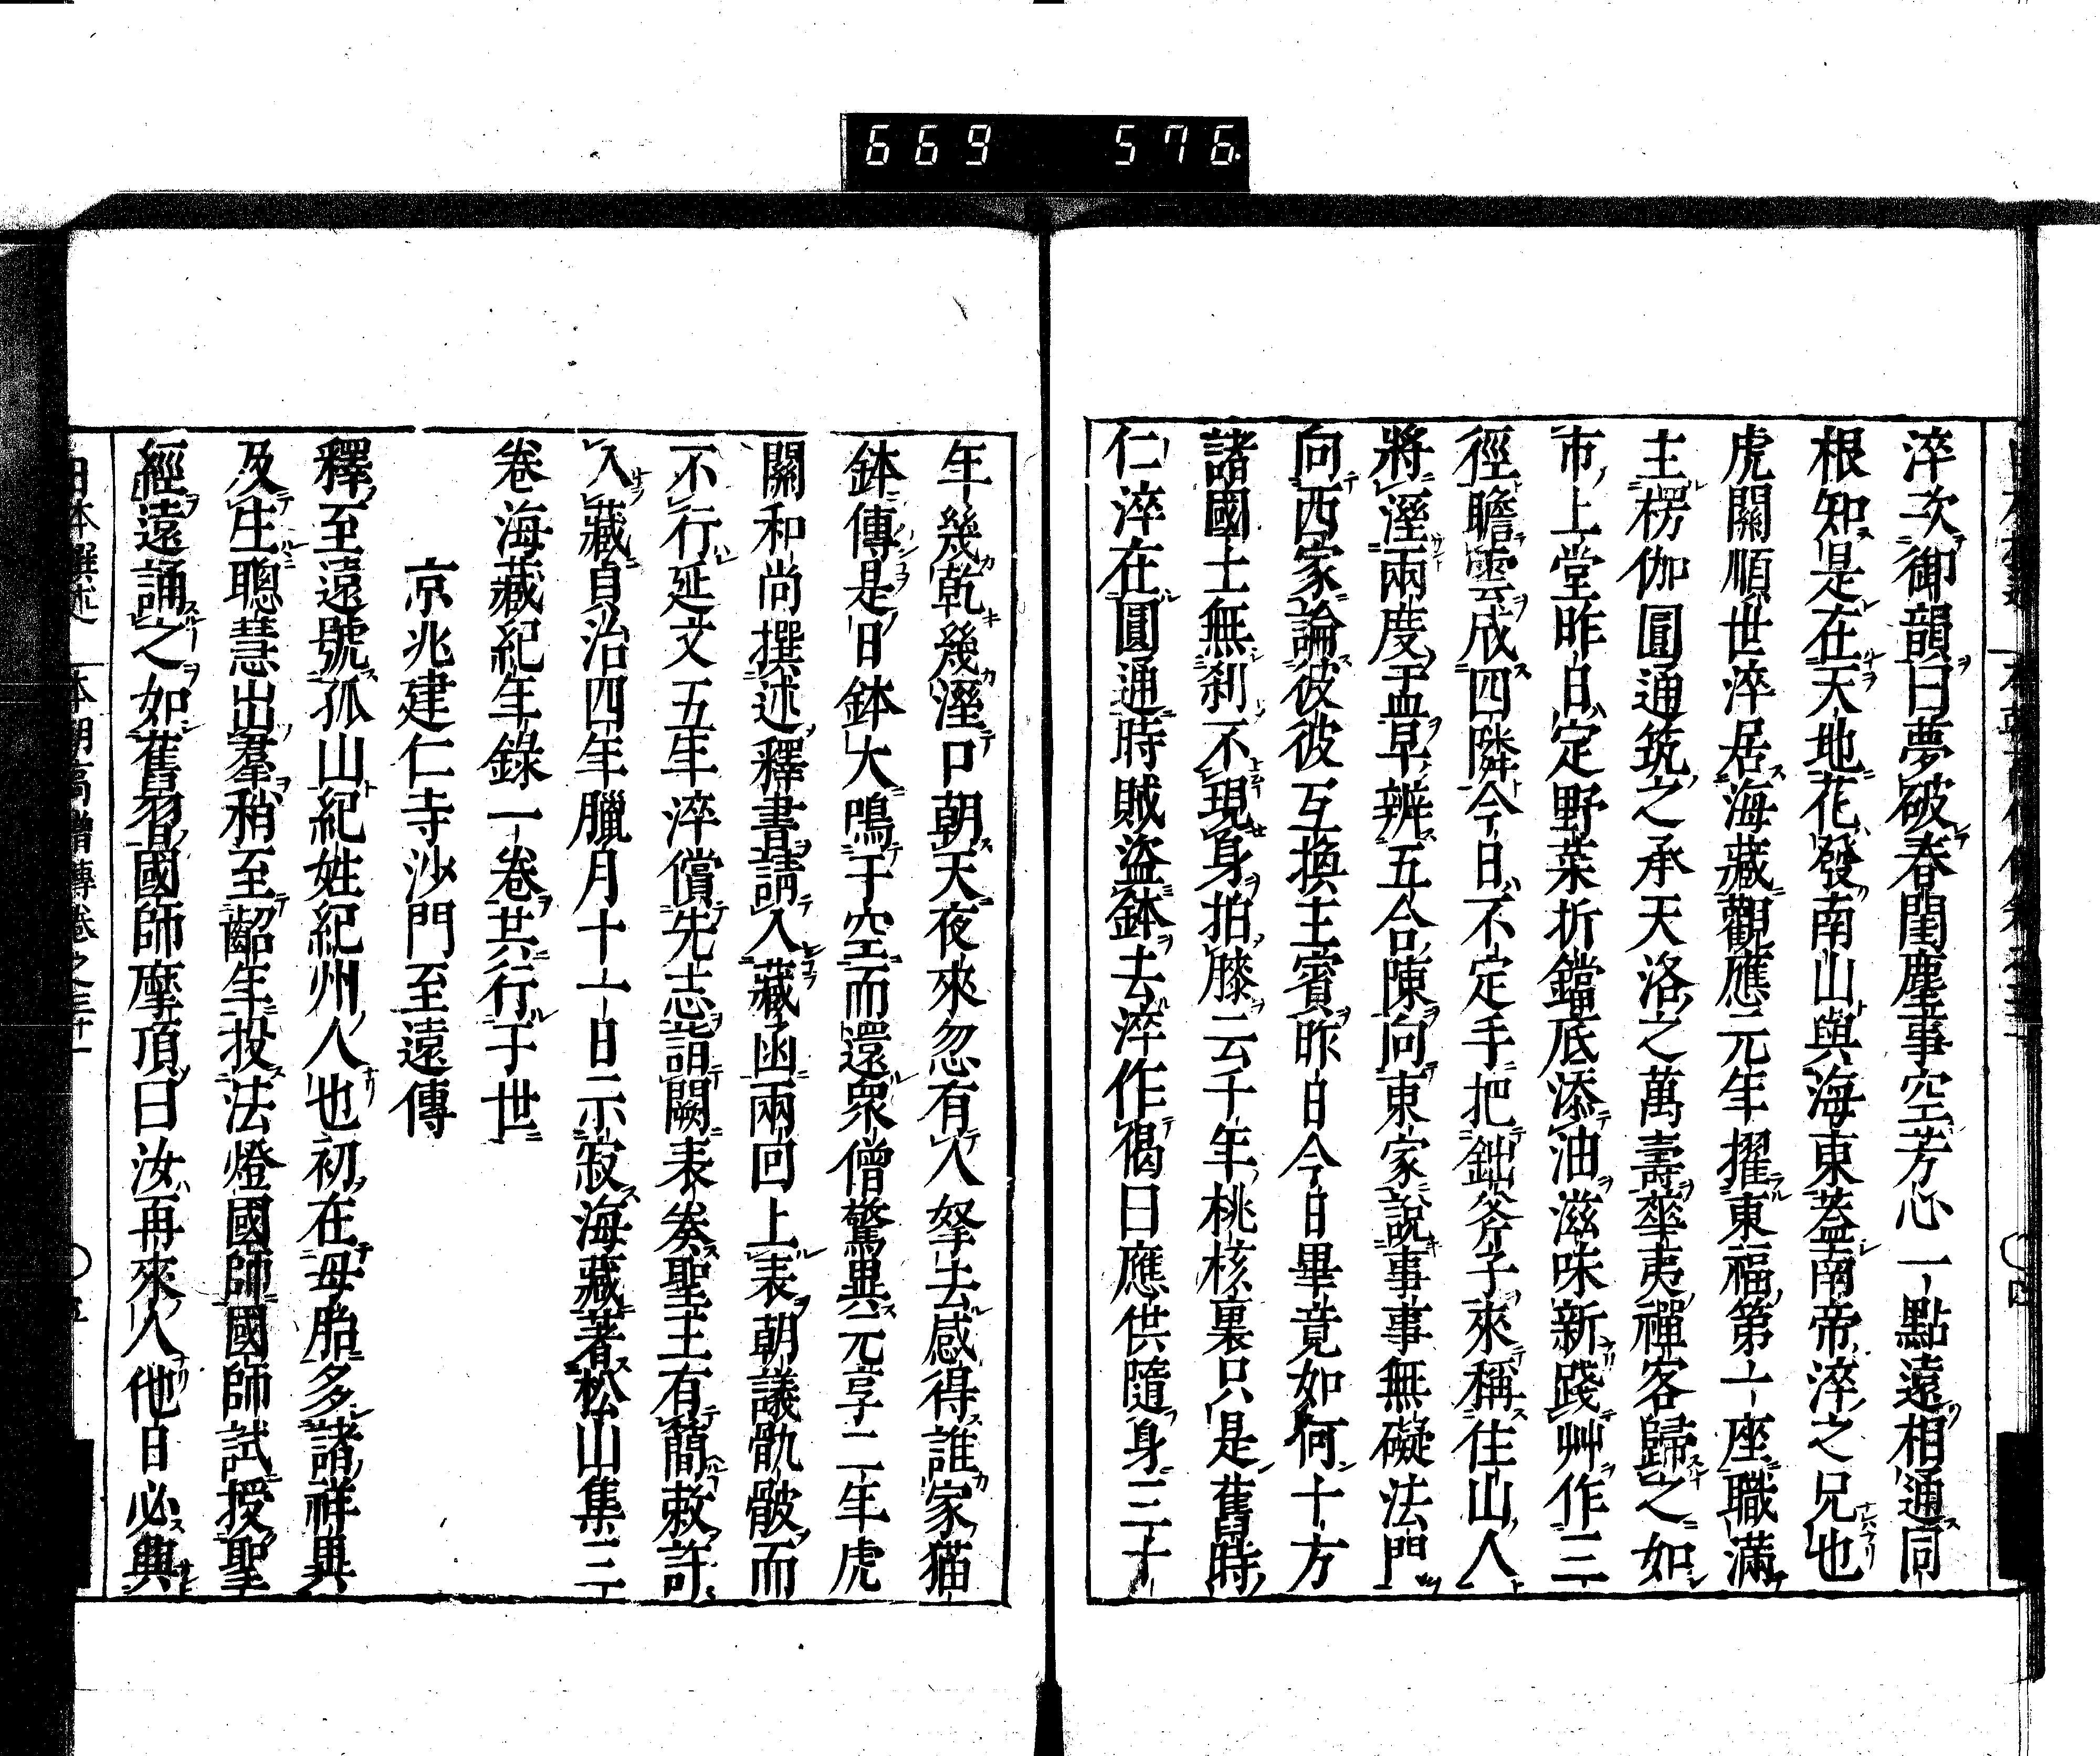 669 576
淬次御韻曰夢破春閨塵事空芳心一點遠相通同
根知是在天地花發南山與海東蓋南帝淬之兄也
虎關順世淬居海藏觀應元年擢東福第一座職滿
主楞伽圓通筑之承天洛之萬壽華夷禪客歸之如
市上堂昨日定野菜折鐺底添油滋味新踐艸作三
徑瞻雲成四隣今日不定手把鈯斧子來稱住山人
將溼兩度孟早辨五合陳向東家說事事無礙法門
向西家論彼彼互換主賓昨日今日畢竟如何十方
諸國土無刹不現身拍膝云千年桃核裏只是舊時
仁淬在圓通時賊盜鉢去淬作偈曰應供隨身三十
年幾乾幾溼口朝天夜來忽有人拏去感得誰家猫
鉢傳是日鉢大鳴于空而還衆僧驚異元亨二年虎
關和尚撰述釋書請入藏函兩回上表朝議骩骳而
不行延文五年淬償先志詣闕表奏聖主有簡敕許
入藏貞治四年臘月十一日示寂海藏著松山集三
卷海藏紀年錄一卷共行于世
京兆建仁寺沙門至遠傳
釋至遠號孤山紀姓紀州人也初在母胎多諸祥異
及生聰慧出羣稍至齠年投法燈國師國師試授聖
經遠誦之如舊習國師摩頂曰汝再來人他日必興
日本撰述 本朝高僧傳卷之三十一